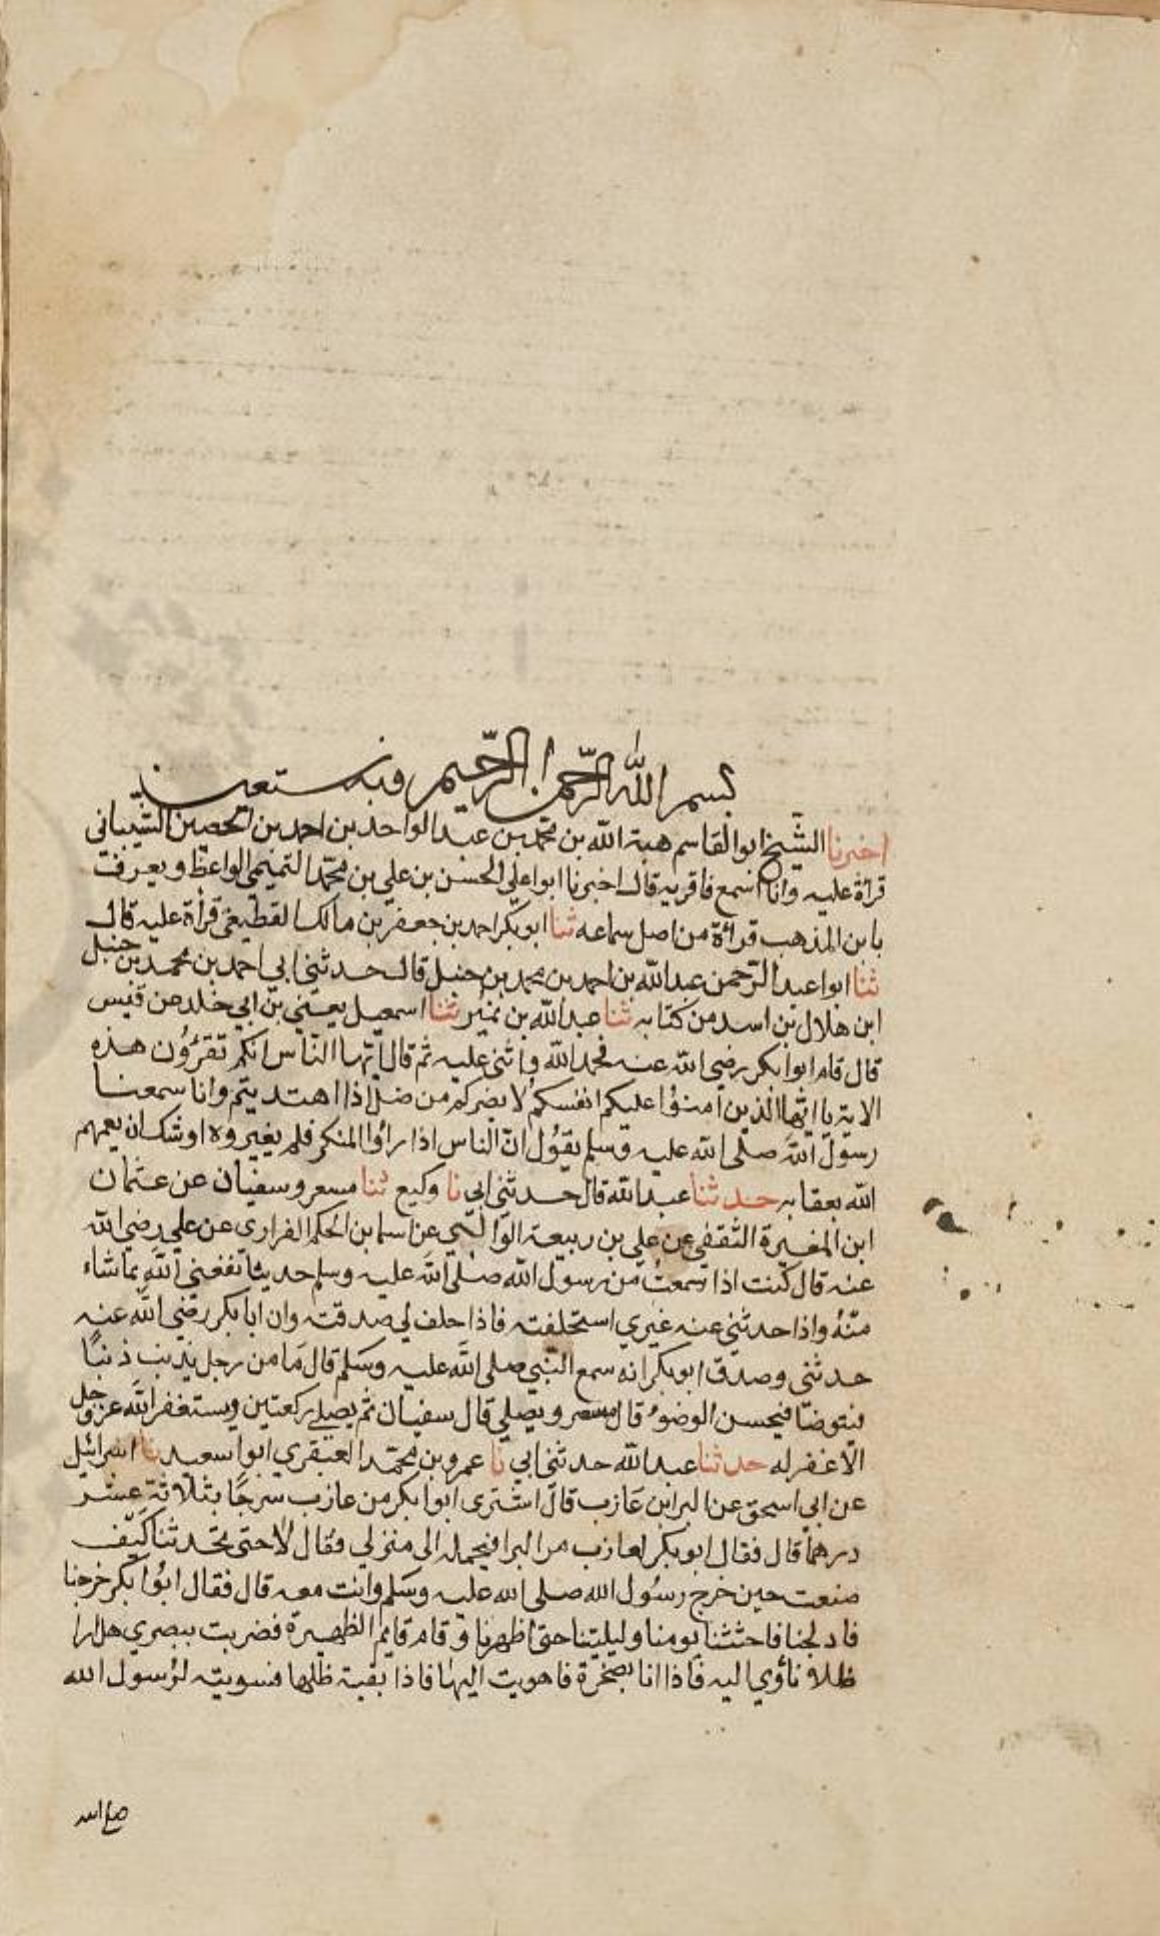 بسم الله الرحمن الرحيم وبه نستعين
اخبرنا الشيخ ابوالقاسم هبة الله بن محمد بن عبدالواحد بن احمد بن الحصين الشيباني
قرأة عليه وانا اسمع فاقربه قال اخبرنا ابوا علي الحسن بن علي بن محمد التميمي الواعظ ويعرف
بابن المذهب قرائة من اصل سماعه ثنا ابوبكر احمد بن جعفر بن مالك القطيعي قرأة عليه قال
ثنا ابوا عبدالرحمن عبدالله بن احمد بن محمد بن حنبل قال حدثني ابي احمد بن محمد بن حنبل
ابن هلال بن اسد من كتابه ثنا عبدالله بن نمير ثنا اسمعيل يعني بن ابي خلد عن قيس
قال قام ابوا بكر رضي الله عنه فحمد الله واثنى عليه ثم قال ايها الناس انكم تقرؤن هذه
الاية يا ايها الذين امنوا عليكم انفسكم لا يضركم من ضل اذا اهتديتم وانا سمعنا
رسول الله صلى الله عليه وسلم يقول ان الناس اذا راوا المنكر فلم يغيروه اوشك ان يعمهم
الله بعقابه حدثنا عبدالله قال حدثني ابي نا وكيع ثنا مسعر وسفيان عن عثمان
ابن المغيرة الثقفي عن علي بن ربيعة الوالبي عن اسما بن الحكم الفرارى عن علي رضي الله
عنه قال كنت اذا سمعت من رسول الله صلى الله عليه وسلم حديثا نفعني الله بما شاء
منه واذا حدثني عنه غيري استحلفته فاذا حلف لي صدقته وان ابا بكر رضي الله عنه
حدثني وصدق ابوبكر انه سمع النبي صلى الله عليه وسلم قال ما من رجل يذنب ذنبًا
فيتوضأ فيحسن الوضوء قال مسعر ويصلي قال سفيان ثم يصلي ركعتين ويستغفر الله عزوجل
الا غفر له حدثنا عبدالله حدثني ابي نا عمرو بن محمد العنقري ابوا سعيد نا اسرائيل
عن ابي اسحق عن البرابن عازب قال اشترى ابوا بكر من عازب سرجًا بثلاثة عشر
درهما قال فقال ابوبكر لعازب مر البرا فيحمله الى منزلي فقال لا حتى تحدثنا كيف
صنعت حين خرج رسول الله صلى الله عليه وسلم وانت معه قال فقال ابوا بكر خرجنا
فادلجنا فاحثثنا يومنا وليلتنا حتى اظهرنا وقام قايم الظهيرة فضربت ببصري هل ارا
ظلا نأوي اليه فاذا انا بصخرة فاهويت اليها فاذا بقية ظلها فسويته لرسول الله
صلى الله